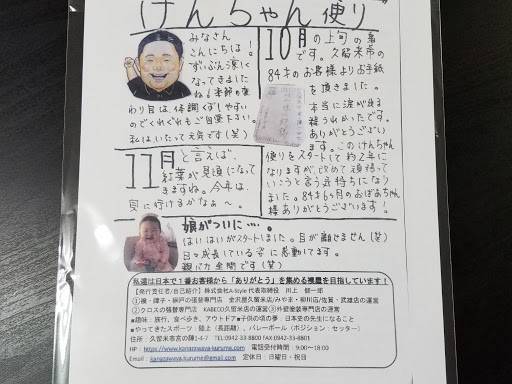 けんちゃん便り
みなさん
こんにちは!
ずいぶん涼しく
なってきました
ね!季節の変
わり目は、体調くずしやすい
のでくれぐれもご自愛下さい。
私はいたって元気です(笑)
10月の上旬の事
です。久留米市の
84才のお客様よりお手紙
を頂きました。
本当に涙が出る
程うれかったです。
ありがとうござい
ます。このけんちゃん
便りをスタートして約2年に
なりますが、改めて頑張って
いこうと言う気持ちになり
ました。84才6ヶ月のおばあちゃん
様ありがとうございます!
11月と言えば、
紅葉が見頃になって
きますね。今年は、
見に行けるかなぁ〜。
娘がついに…。
はいはいがスタートしました。目が離せません(笑)
日々成長している姿に感動してます。
親バカ全開です(笑)
私達は日本で1番お客様から「ありがとう」を集める襖屋を目指しています!
【発行責任者/自己紹介】株式会社A-Style 代表取締役 川上 健一
①襖・障子・網戸の張替専門店 金沢屋久留米店/みやま・柳川店/佐賀・武雄店の運営
②クロスの張替専門店 KABECO久留米店の運営③外壁塗装専門店の運営
■趣味:旅行、食べ歩き、アウトドア■子供の頃の夢:日本史の先生になること
■やってきたスポーツ:陸上(長距離)、バレーボール(ポジション・セッター)
住所 久留米市宮の陣1-4-7 TEL:0942-33-8800 FAX:0942-33-8801
HP:https://www.kanazawaya-kurume.com 電話受付時間:9:00~18:00
Email:kanazawaya.kurume@email.com 定休日:日曜日・祝日